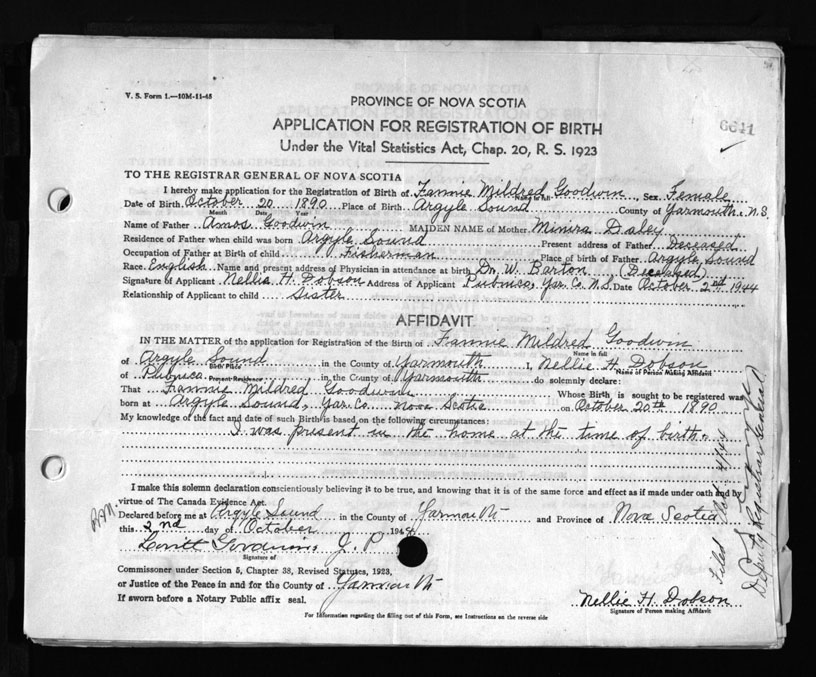 V. S. Form 1.—10M-11-45
PROVINCE OF NOVA SCOTIA
APPLICATION FOR REGISTRATION OF BIRTH
Under the Vital Statistics Act, Chap. 20, R. S. 1923
6641
TO THE REGISTRAR GENERAL OF NOVA SCOTIA
I hereby make application for the Registration of Birth of Fannie Mildred Goodwin, Sex Female
Name in full
Date of Birth October 20 1890 Place of Birth Argyle Sound County of Yarmouth N.S.
Month Date Year
Name of Father Amos Goodwin MAIDEN NAME of Mother Daley
Residence of Father when child was born Argyle Sound Present address of Father Deceased
Occupation of Father at Birth of child Fisherman Place of birth of Father Argyle Sound
Race English Name and present address of Physician in attendance at birth Dr. W. Barton (Deceased)
Signature of Applicant Nellie H. Dobson Address of Applicant Pubnico, Yar. Co. N.S. Date October 2nd 1944
Relationship of Applicant to child Sister
AFFIDAVIT
IN THE MATTER of the application for Registration of the Birth of Fannie Mildred Goodwin
Name in full
of Argyle Sound in the County of Yarmouth I, Nellie H. Dobson
Birth Place Name of Person Making Affidavit
of Pubnico in the County of Yarmouth do solemnly declare:
Present Residence
That Fannie Mildred Goodwin Whose Birth is sought to be registered was
born at Argyle Sound, Yar. Co. Nova Scotia on October 20th 1890
My knowledge of the fact and date of such Birth is based on the following circumstances:
I was present in the home at the time of birth.
I make this solemn declaration conscientiously believing it to be true, and knowing that it is of the same force and effect as if made under oath and by
virtue of The Canada Evidence Act.
Declared before me at Argyle Sound in the County of Yarmouth and Province of Nova Scotia
this 2nd day of October 194
J. P.
Signature of
Commissioner under Section 5, Chapter 38, Revised Statutes, 1923,
or Justice of the Peace in and for the County of Yarmouth
If sworn before a Notary Public affix seal.
Nellie H. Dobson
Signature of Person making Affidavit
For Information regarding the filling out of this Form, see Instructions on the reverse side
Filed Oct 4/44
Deputy Registrar General